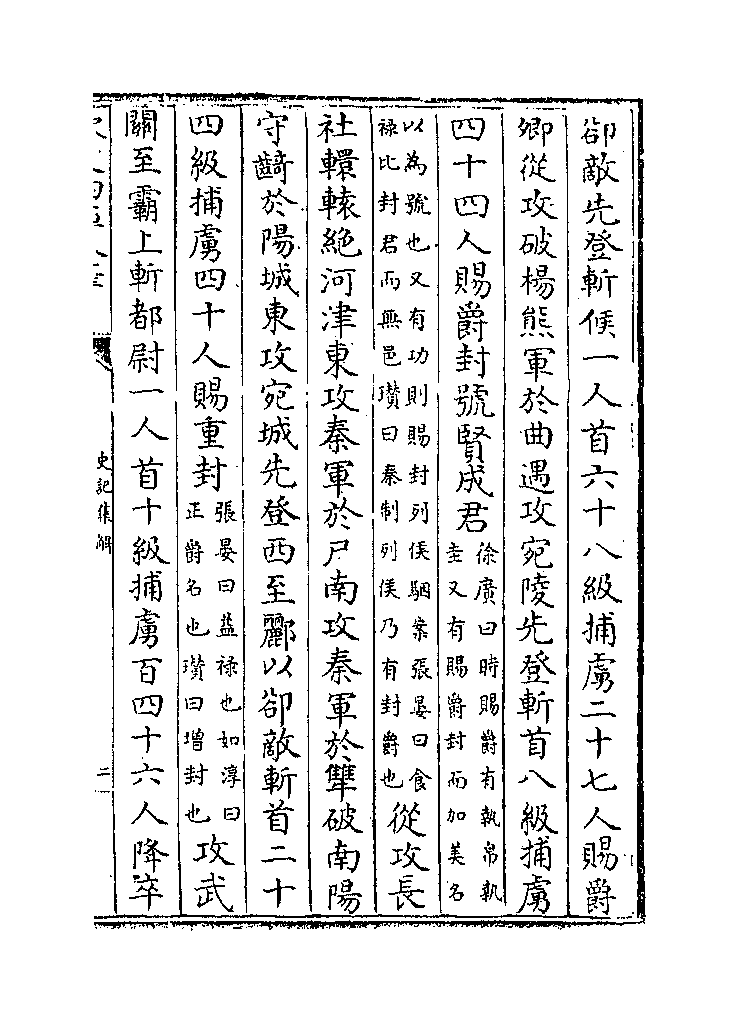 卻敵先登斬候一人首六十八級捕虜二十七人賜爵
卿從攻破楊熊軍於曲遇攻宛陵先登斬首八級捕虜
四十四人賜爵封號賢成君徐廣曰時賜爵有執帛執
圭又有賜爵封而加美名
以為號也又有功則賜封列侯駰案張晏曰食
祿比封君而無邑瓚曰秦制列侯乃有封爵也從攻長
社轘轅絶河津東攻秦軍於尸南攻秦軍於犨破南陽
守齮於陽城東攻宛城先登西至酈以卻敵斬首二十
四級捕虜四十人賜重封張晏曰益祿也如淳曰
正爵名也瓚曰增封也攻武
關至霸上斬都尉一人首十級捕虜百四十六人降卒
史記集解
二